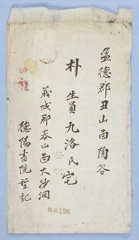 盈德郡丑山面陶谷
朴生員九洛氏宅
義城郡春山面大沙洞
德陽書院